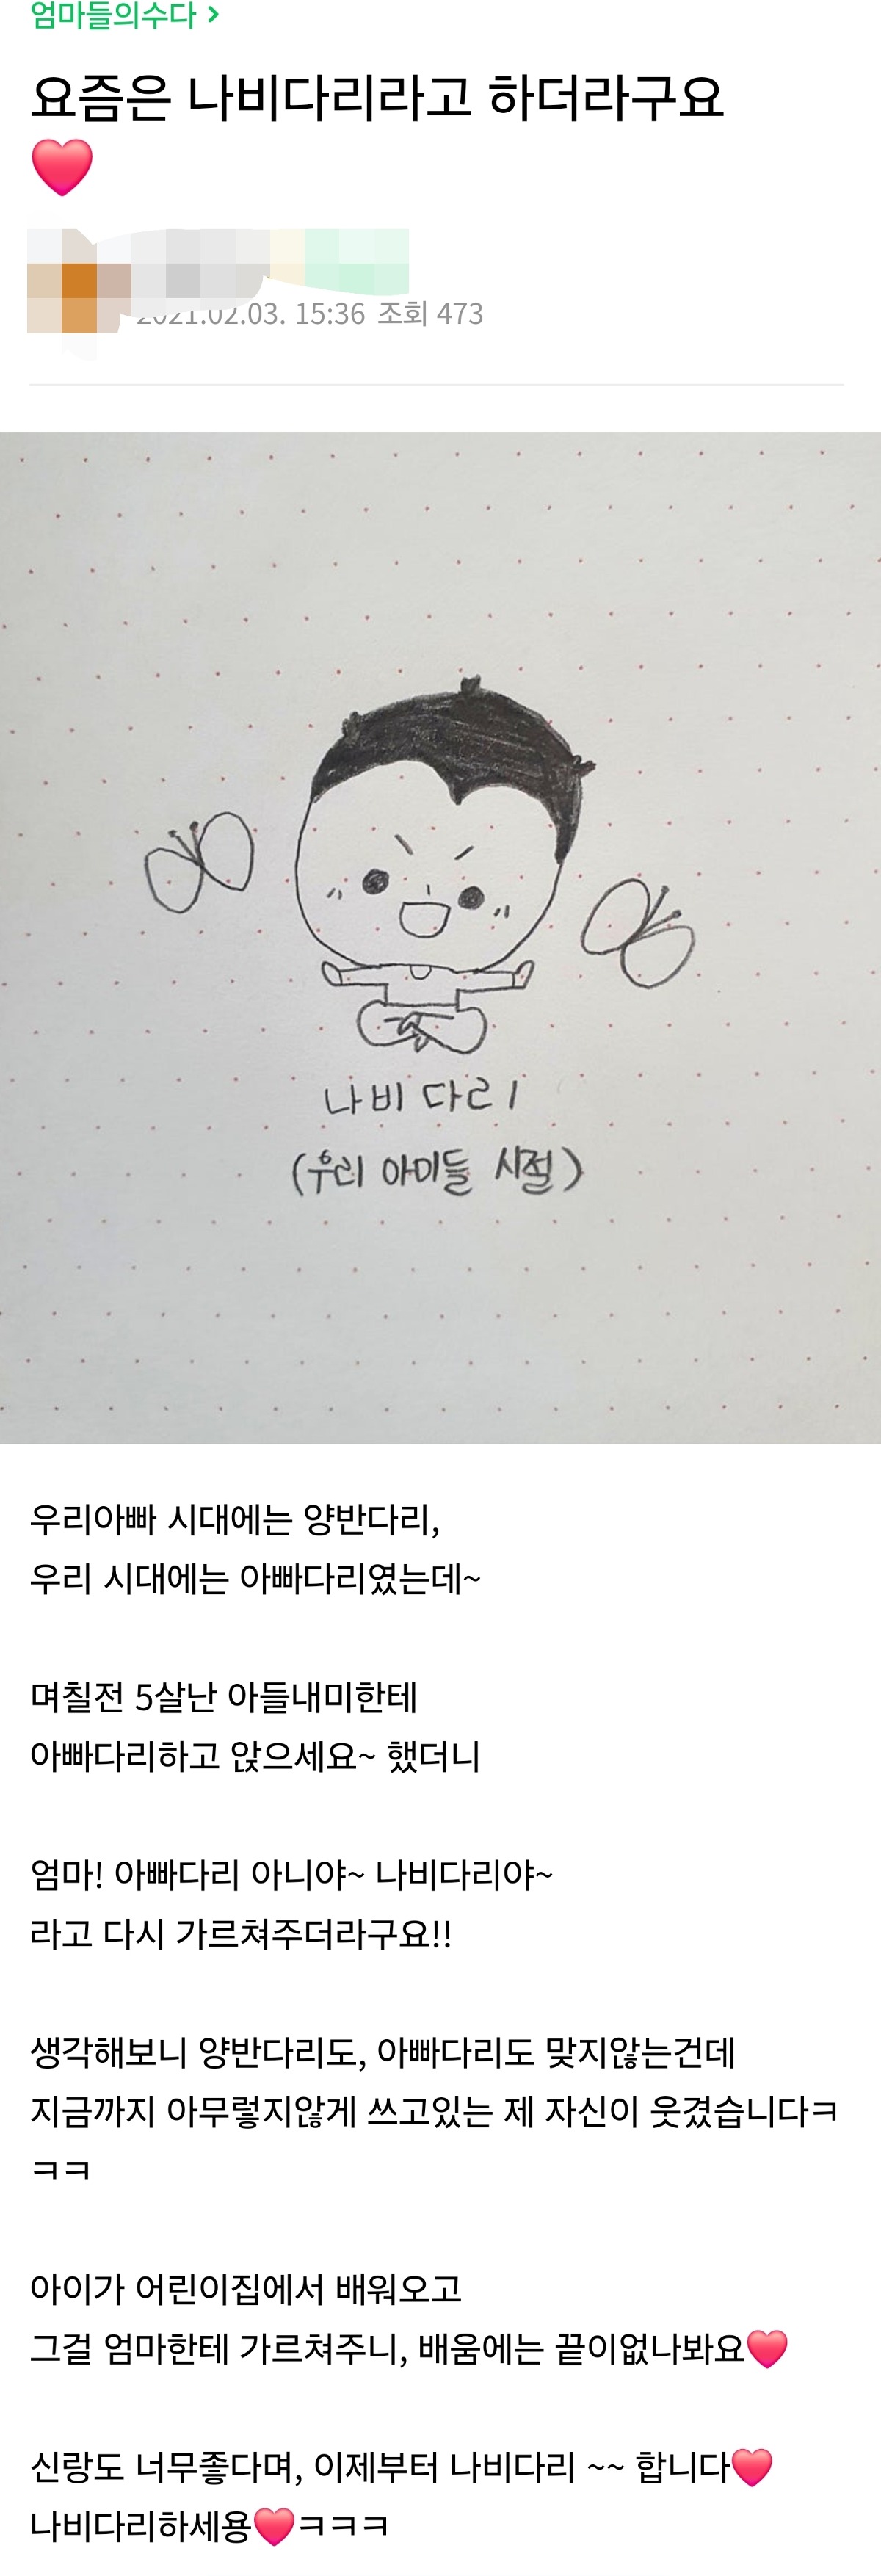 엄마들의수다 >
요즘은 나비다리라고 하더라구요
❤️
2021.02.03. 15:36 조회 473
나비 다리
(우리 아이들 시절)
우리아빠 시대에는 양반다리,
우리 시대에는 아빠다리였는데~
며칠전 5살난 아들내미한테
아빠다리하고 앉으세요~ 했더니
엄마! 아빠다리 아니야~ 나비다리야~
라고 다시 가르쳐주더라구요!!
생각해보니 양반다리도, 아빠다리도 맞지않는건데
지금까지 아무렇지않게 쓰고있는 제 자신이 웃겼습니다ㅋ
ㅋㅋ
아이가 어린이집에서 배워오고
그걸 엄마한테 가르쳐주니, 배움에는 끝이없나봐요❤️
신랑도 너무좋다며, 이제부터 나비다리 ~~ 합니다❤️
나비다리하세용❤️ㅋㅋㅋ